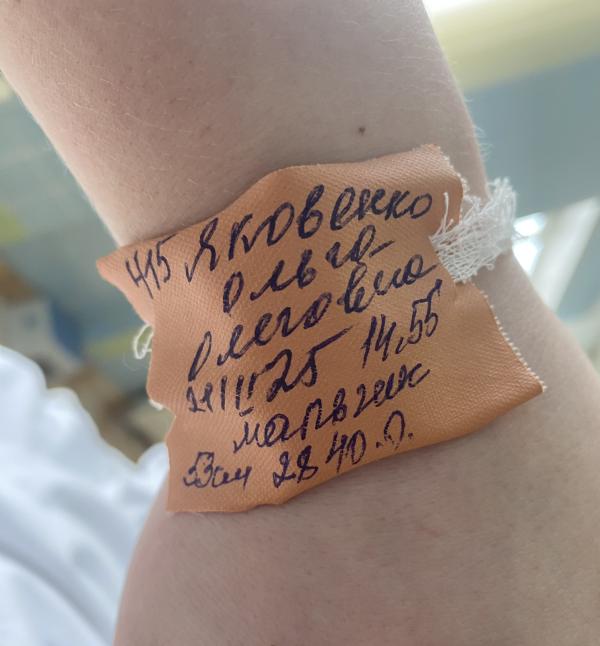 415 Яковенко
Ольга
Олеговна
14.55
мальчик
53см 2840.0.